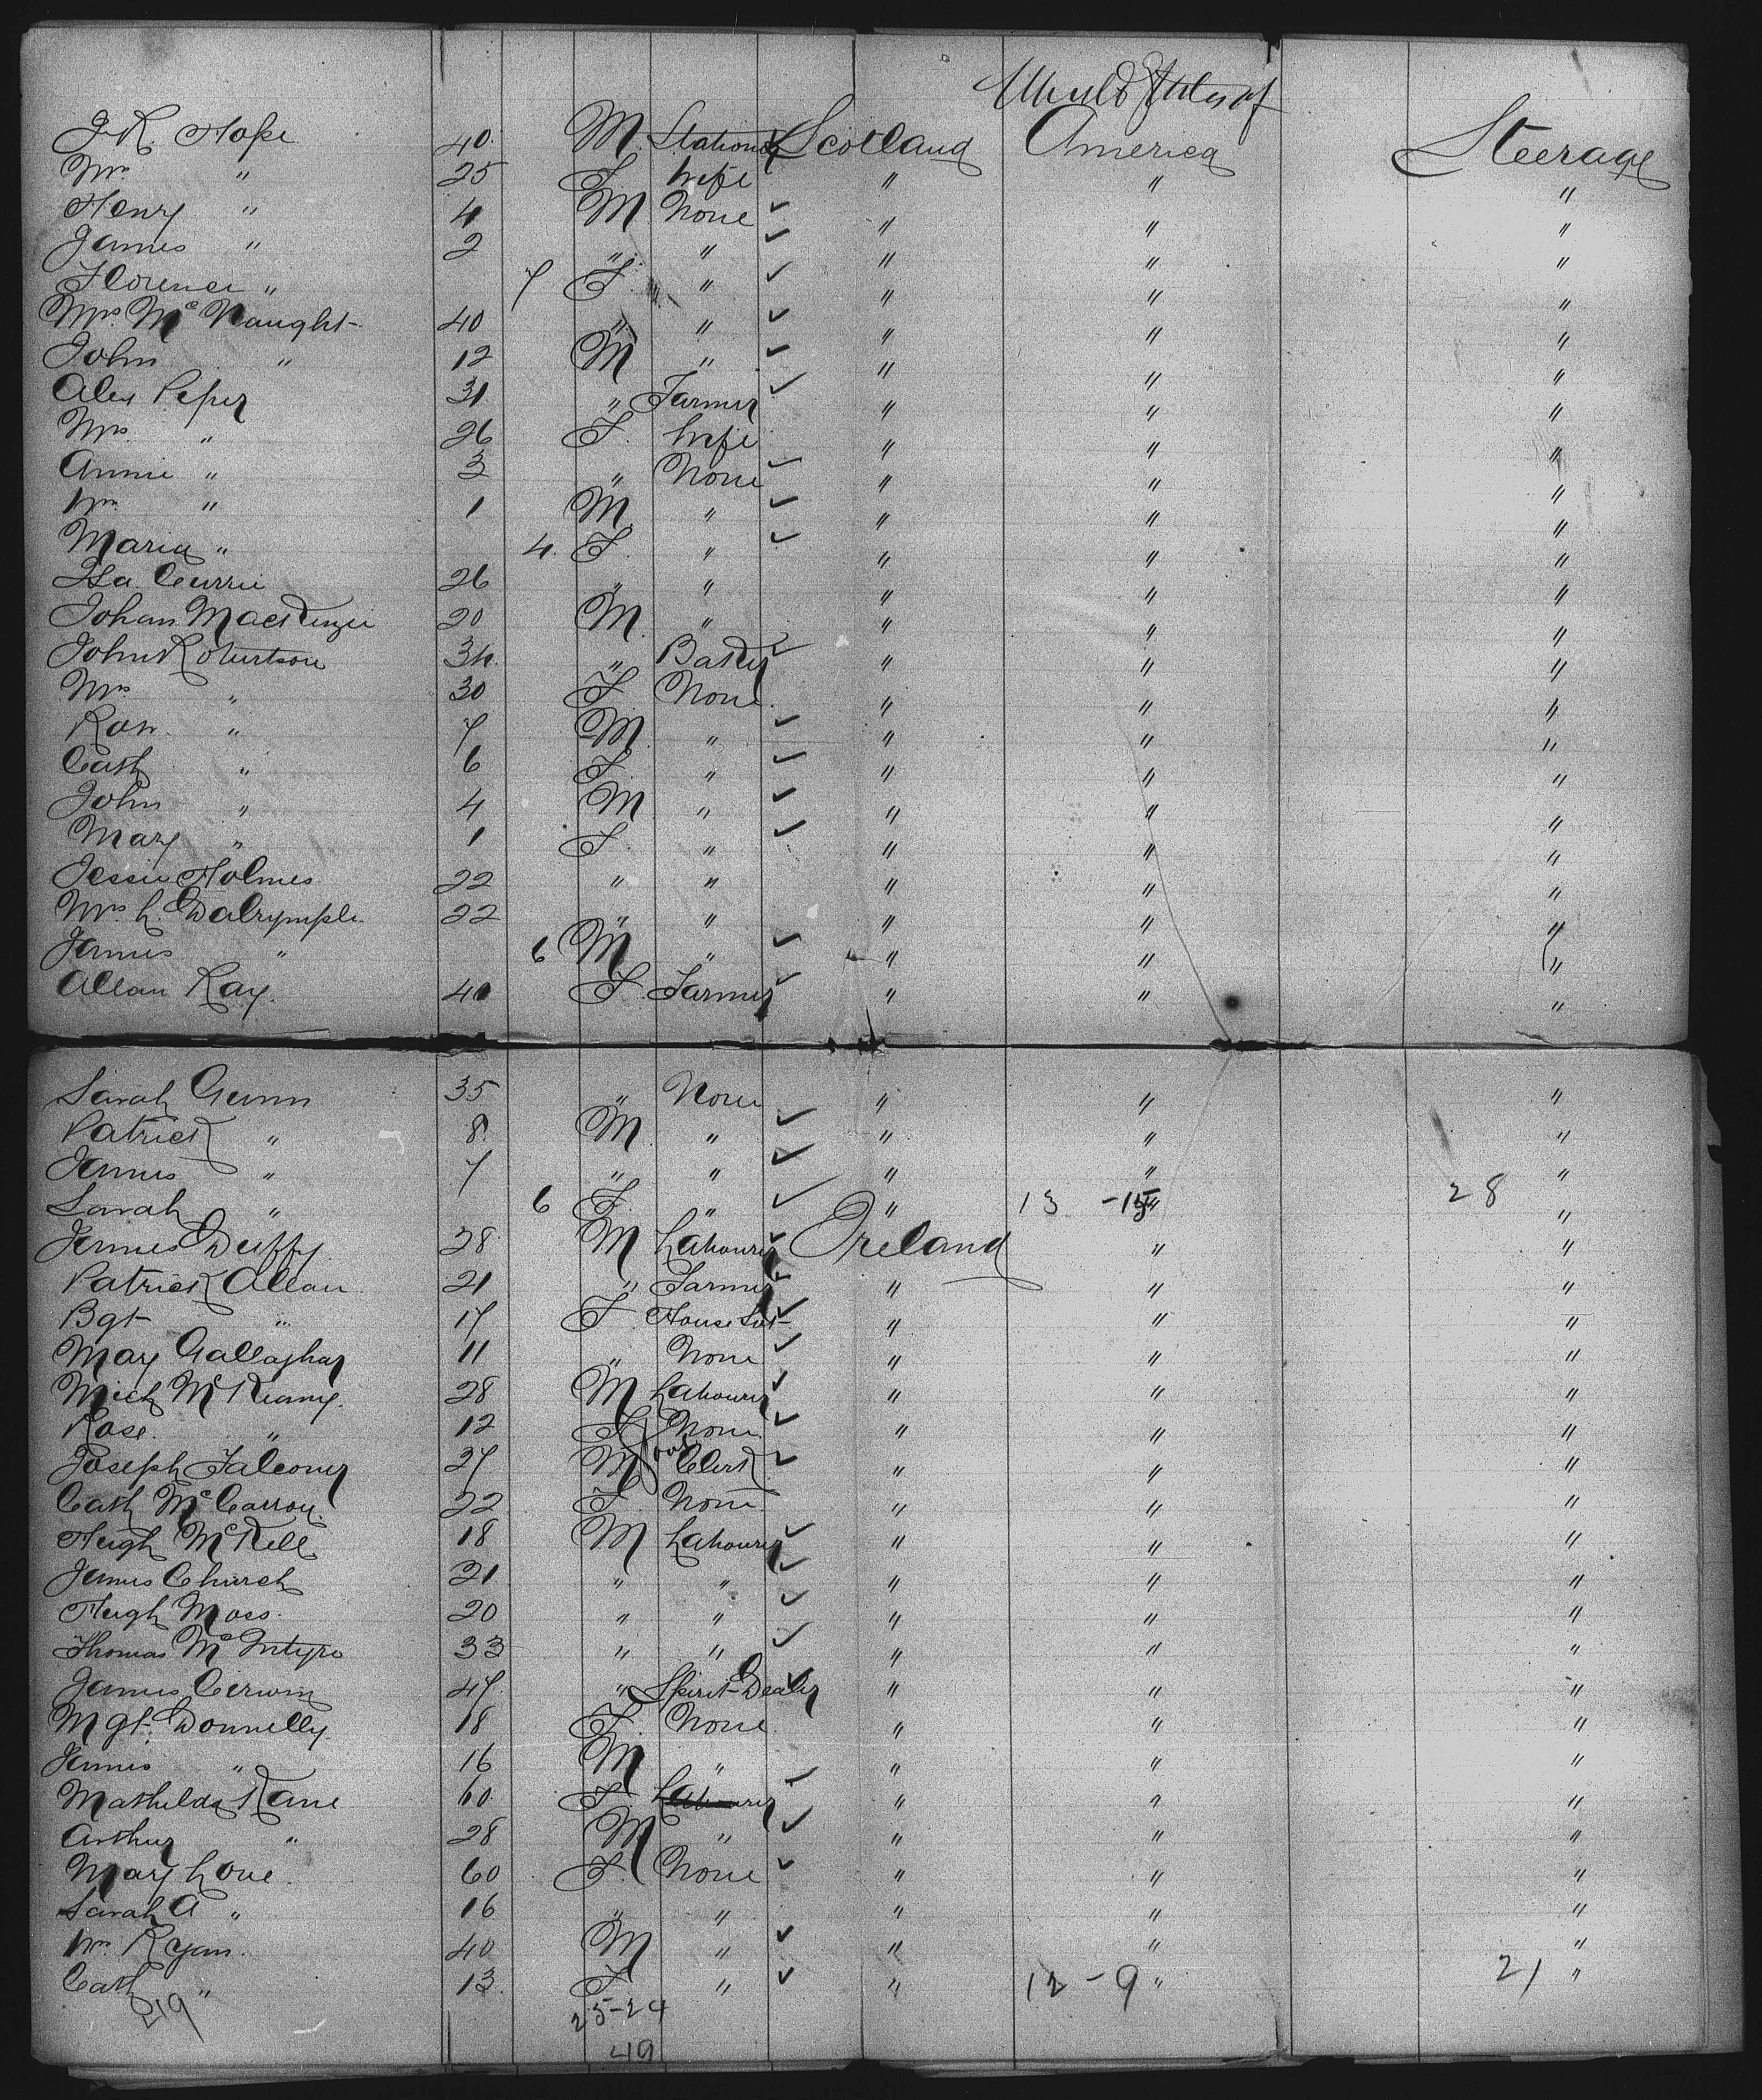 United States of
J. R. Hope 40. M. Stationer Scotland America Steerage
Mrs " 25 F. Wife " " "
Henry " 4 M None " " "
James " 2 " " " " "
Florence " 7 F. " " " "
Mrs. Mc Naught 40 " " " " "
John " 12 M " " " "
Alex Peper 31 " Farmer " " "
Mrs. " 26 F. Wife " " "
Annie " 3 " None " " "
Wm " 1 M. " " " "
Maria " 4. F. " " " "
Isa. Currie 26 " " " " "
Johan MacKenzie 20 M. " " " "
John Robertson 34. " Baker " " "
Mrs " 30 F. None. " " "
Robt. " 7 M. " " " "
Cath " 6 F. " " " "
John " 4 M " " " "
Mary " 1 F. " " " "
Jessie Holmes. 22 " " " " "
Mrs. L. Dalrymple 22 " " " " "
James " 6 M " " " "
Allan Kay. 40 F. Farmer " " "
Sarah Gunn 35 " None " " "
Patrick " 8. M. " " " "
James " 7 " " " " "
Sarah " 6 F. " " 13 - 15 " 28 "
James Duffy. 28 M Labourer Ireland " "
Patrick Allan 21 " Farmer " " "
Bgt " 17 F. House Svt " " "
Mary Gallaghar 11 " None " " "
Mich McKeamy. 28 M Labourer " " "
Rose. " 12 F None. " " "
Joseph Falconer 27 M Clerk " " "
Cath McCarroy. 22 F. None. " " "
Hugh McKell 18 M Labourer " " "
James Church 21. " " " " "
Hugh Moss. 20 " " " " "
Thomas Mc Intyre 33 " " " " "
James Cerwin 47 " Spirit-Dealer " " "
Mgt. Donnelly. 18 F. None " " "
James " 16 M " " " "
Mathilda Kane 60. F. Labourer " " "
Arthur " 28 M " " " "
Mary Love. 60 F. None " " "
Sarah A " 16 " " " " "
Wm. Ryan. 40 M " " " "
Cath " 13. F " " 12 - 9 " 21 "
219 25-24
49